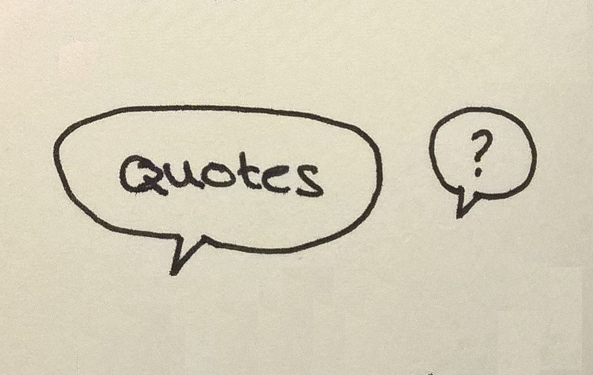 Quotes
?